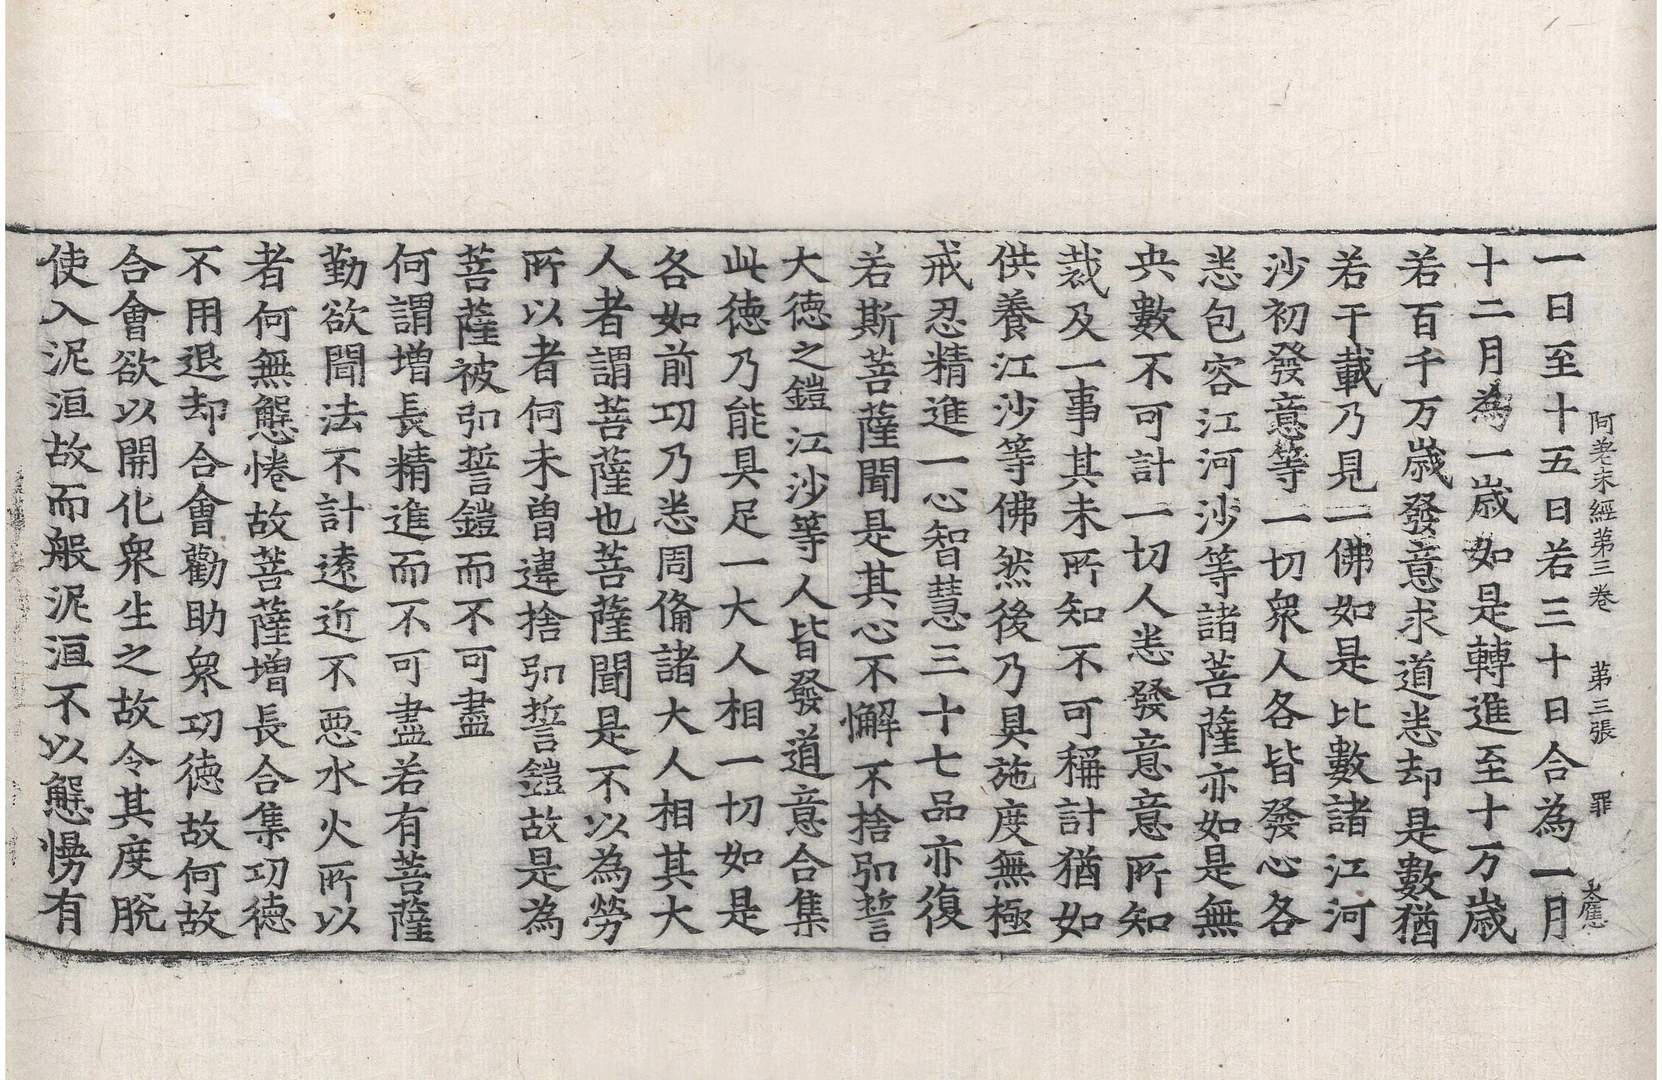 阿差末經第三卷 第三張 罪
一日至十五日若三十日合為一月
十二月為一歲如是轉進至十万歲
若百千万歲發意求道恙却是數猶
若干載乃見一佛如是比數諸江河
沙初發意等一切衆人各皆發心各
悉包容江河沙等諸菩薩亦如是無
央數不可計一切人悉發意意所知
裁及一事其未所知不可稱計猶如
供養江沙等佛然後乃具施度無極
戒忍精進一心智慧三十七品亦復
若斯菩薩聞是其心不懈不捨弘誓
大德之鎧江沙等人皆發道意合集
此德乃能具足一大人相一切如是
各如前功乃悉周俻諸大人相其大
人者謂菩薩也菩薩聞是不以為勞
所以者何未曾違捨弘誓鎧故是為
菩薩被弘誓鎧而不可盡
何謂增長精進而不可盡若有菩薩
勤欲聞法不計遠近不惡水火所以
者何無懈惓故菩薩增長合集功德
不用退却合會勸助衆功德故何故
合會欲以開化衆生之故令其度脫
使入泥洹故而般泥洹不以懈慢有